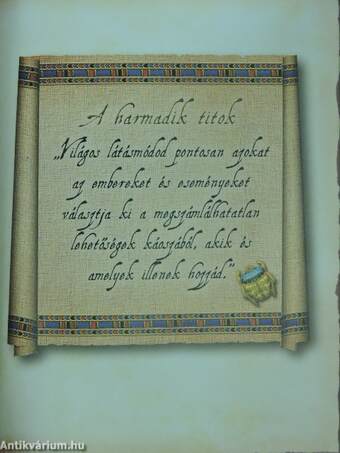 A harmadik titok
„Világos látásmódod pontosan azokat
az embereket és eseményeket
választja ki a megszámlálhatatlan
lehetőségek káoszából, akik és
amelyek illenek hozzád.”
Antikvárium.hu